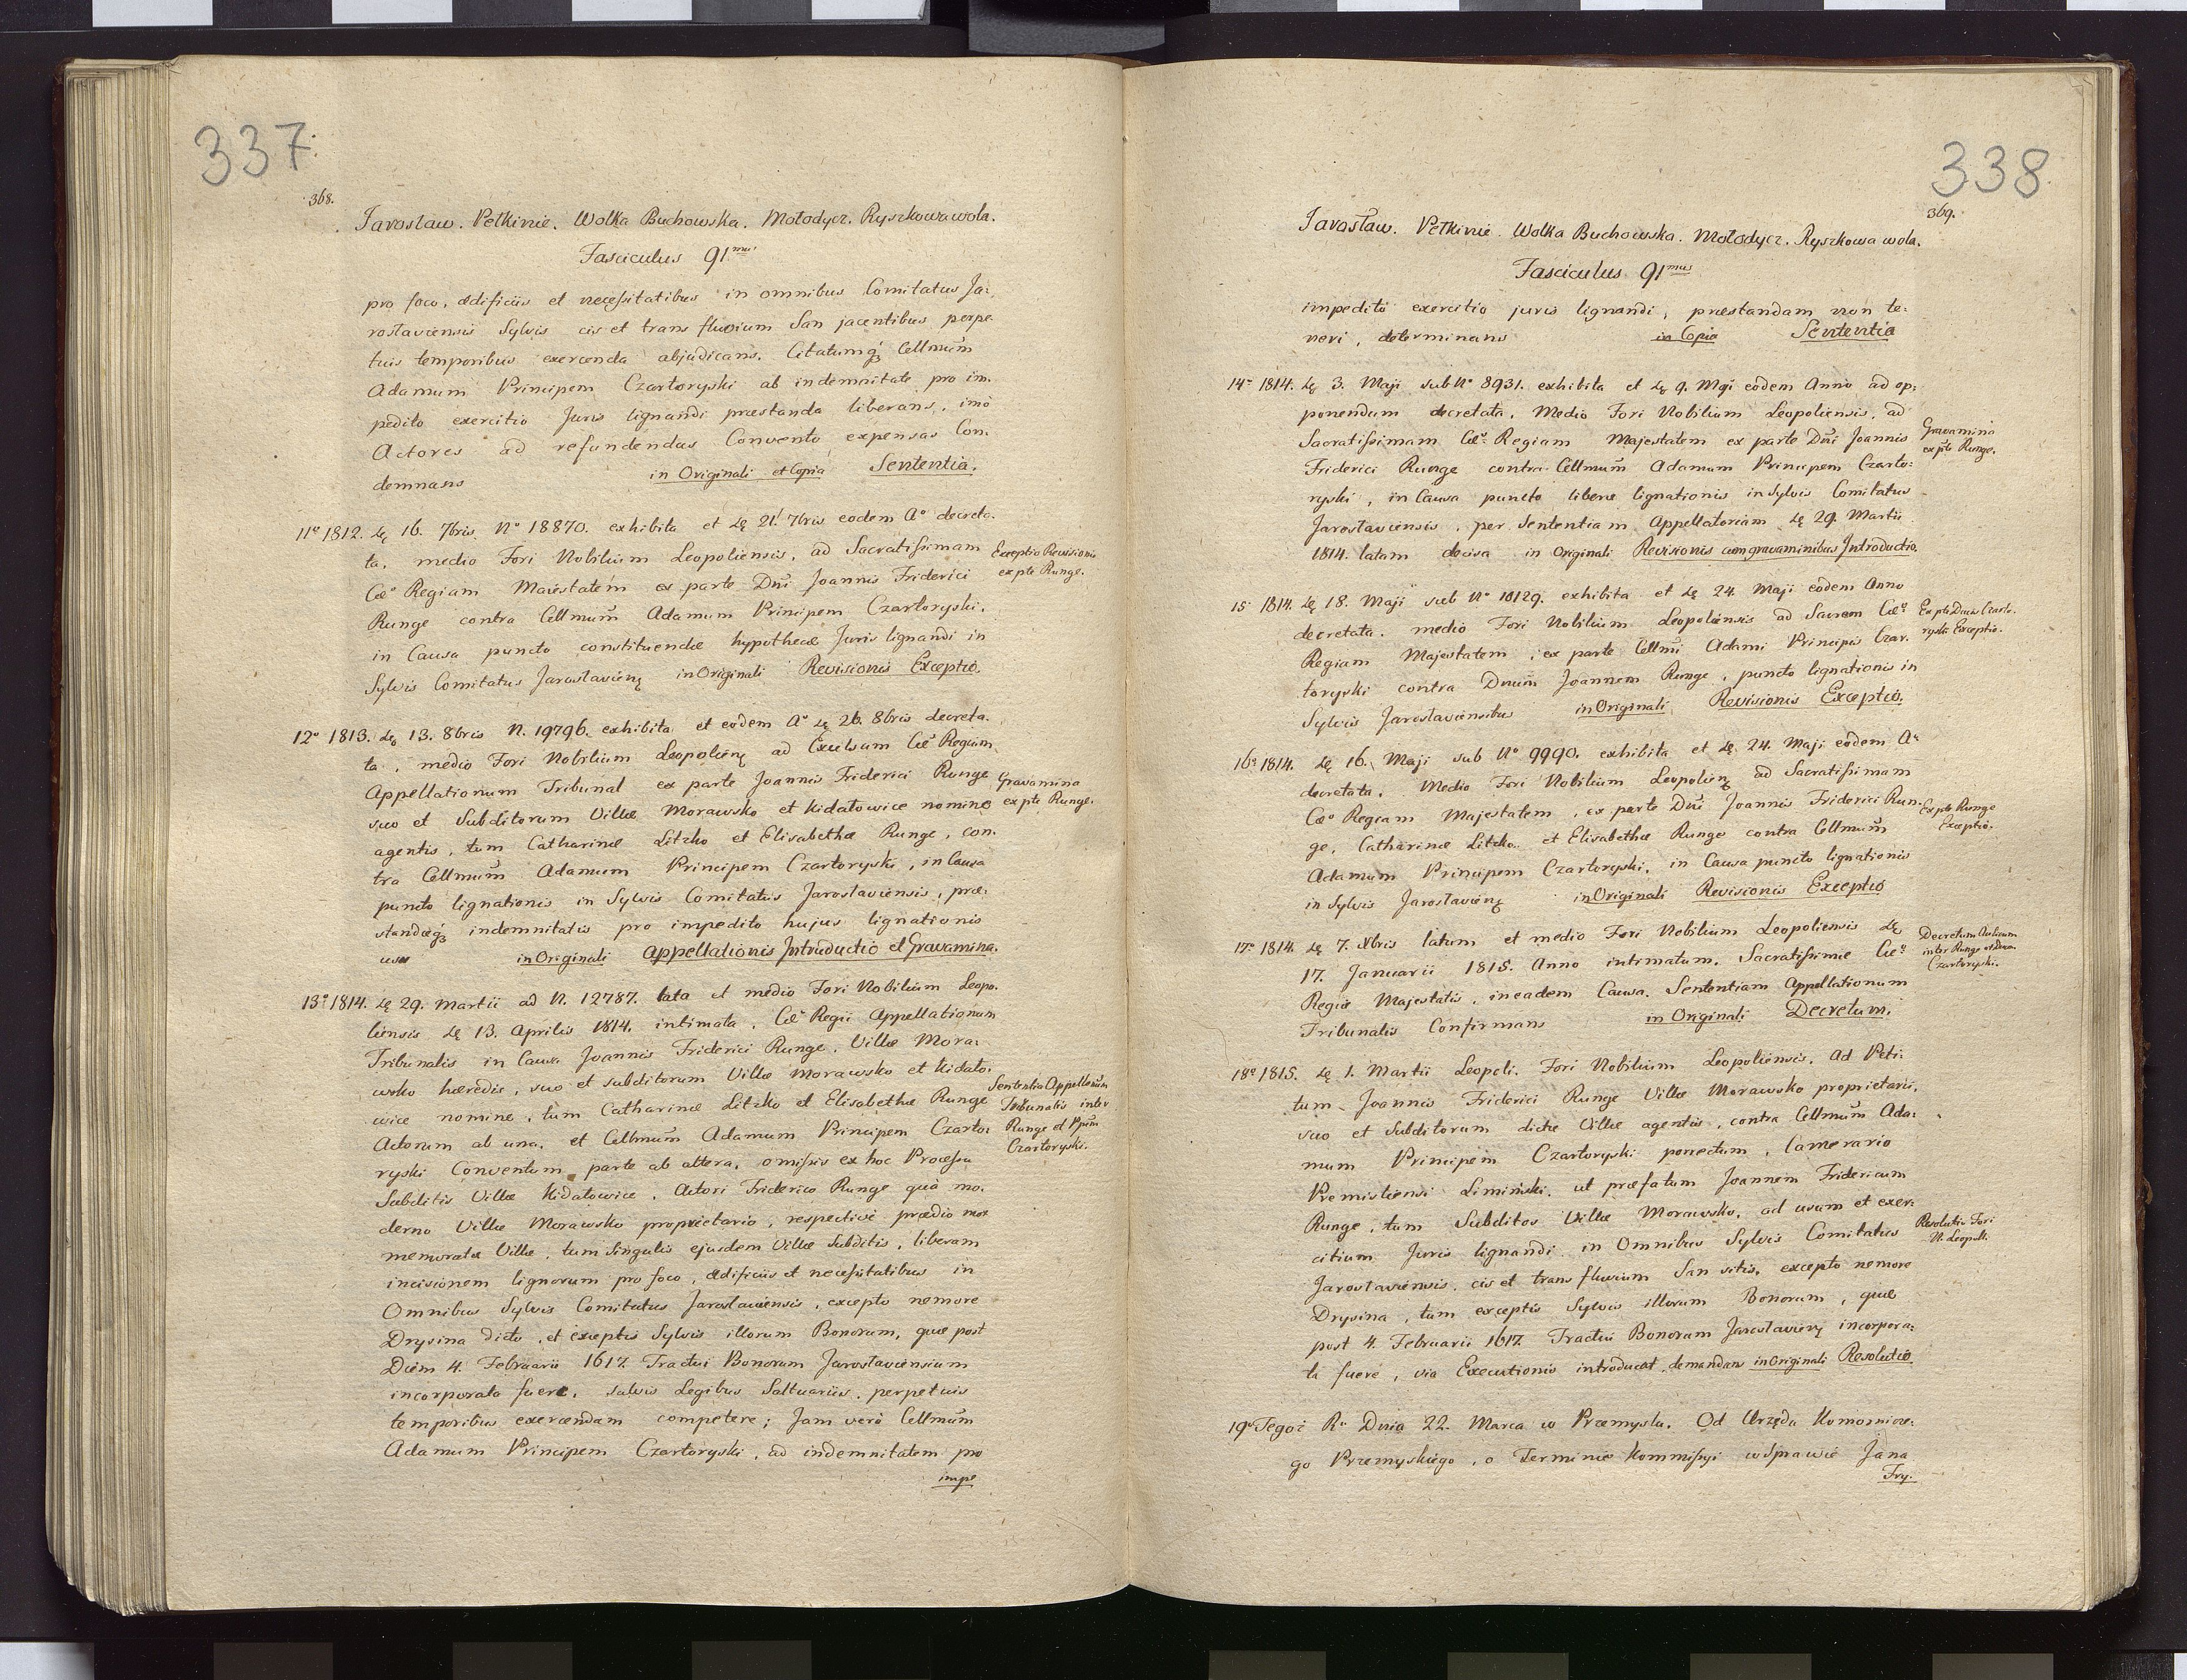 337.
368.
Jarosław. Pełkinie. Wolka Buchowska. Mołodycz. Ryszkowawola.
Fasciculus 91mus
pro foco, ædificiis et necessitatibus in omnibus Comitatus Ja:
roslaviensis Sylvis cis et trans fluvium San jacentibus perpe
tuis temporibus exercenda abjudicans. Citatumq3 Cellmum̃
Adamum Principem Czartoryski ab indemnitate pro im.
pedito exercitio Juris lignandi præstanda liberans, imò
Actores ad refundendas Convento expensas Con.
demnans in Originali et Copia Sententia.
11º 1812. de 16. 7bris Nº 18870. exhibita et de 21. 7bris eodem Aº decreta.
ta, medio Fori Nobilium Leopoliensis, ad Sacratissimam
Cæº Regiam Maiestatem ex parte Dni Joannis Friderici
Runge contra Cellmum̃ Adamum Principem Czartoryski.
in Causa puncto constituendæ hypothecæ Juris lignandi in
Sylvis Comitatus Jaroslavien̄ in Originali Revisionis Exceptio.
Exceptio Revisionis
ex pte Runge.
12º 1813. de 13. 8bris N. 19796. exhibita et eodem Aº de 26. 8bris decreta.
ta, medio Fori Nobilium Leopolien̄ ad Excelsum Cæº Regium
Appellationum Tribunal ex parte Joannis Friderici Runge
suo et Subditorum Villæ Morawsko et Kidałowice nomine
agentis, tum Catharinæ Litzko et Elisabethæ Runge, con.
tra Cellmum̃ Adamum Principem Czartoryski, in Causa
puncto lignationis in Sylvis Comitatus Jaroslaviensis, præ:
standæq3 indemnitatis pro impedito hujus lignationis
usu in Originali Appellationis Introductio et Gravamina.
Gravamina
ex pte Runge.
13º 1814. de 29. Martii ad N. 12787. lata et medio Fori Nobilium Leopo.
liensis de 13. Aprilis 1814. intimata. Cæº Regii Appellationum
Tribunalis in Causa Joannis Friderici Runge. Villæ Mora:
wsko hæredis, suo et subditorum Villæ Morawsko et Kidało.
wice nomine, tum Catharinæ Litzko et Elisabethæ Runge
Actorum ab una, et Cellmum̃ Adamum Principem Czarto:
ryski Conventum parte ab altera, omissis ex hoc Processu
Subditis Villæ Kidałowice, Actori Friderico Runge quà mo.
derno Villæ Morawsko proprietario, respective prædio mox
memoratæ Villæ, tum Singulis ejusdem Villæ Subditis, liberam
incisionem lignorum pro foco, ædificiis et necessitatibus in
Omnibus Sylvis Comitatus Jaroslaviensis, excepto nemore
Drysina dicto, et exceptis Sylvis illorum Bonorum, quæ post
Diem 4. Februarii 1617. Tractui Bonorum Jaroslaviensium
incorporata fuere, salvis Legibus Saltuariis, perpetuis
temporibus exercendam competere; Jam verò Cellmum̃
Adamum Principem Czartoryski, ad indemnitatem pro
impe
Sententia Appellnum
Tribunalis inter
Runge et Ppem
Czartoryski.
338.
369.
Jarosław. Pełkinie. Wolka Buchowska. Mołodycz. Ryszkowa wola.
Fasciculus 91mus
impedito exercitio juris lignandi, præstandam non te:
neri, determinans in Copia Sententia
14º 1814. de 3. Maji sub Nº 8931. exhibita et de 9. Mai eodem Anno ad op:
ponendum decretata. Medio Fori Nobilium Leopoliensis, ad
Sacratissimam Cæº Regiam Majestatem ex parte Dni Joannis
Friderici Runge contra Cellmum̃ Adamum Principem Czarto:
ryski, in Causa puncto liberæ lignationis in Sylvis Comitatus
Jaroslaviensis, per Sententiam Appellatoriam de 29. Martii
1814. latam decisa in Originali Revisionis cum gravaminibus Introductio.
Gravamina
ex pte Runge.
15º 1814. de 18. Maji sub Nº 10129. exhibita et de 24. Maji eodem Anno
decretata. medio Fori Nobilium Leopoliensis ad Sacram Cæº
Regiam Majestatem, ex parte Cellmi Adami Principis Czar.
toryski contra Dnum̃ Joannem Runge, puncto lignationis in
Sylvis Jaroslaviensibus in Originali Revisionis Exceptio.
Ex pte Ducis Czarto.
ryski Exceptio.
16º 1814. de 16. Maji sub Nº 9990. exhibita et de 24. Maji eodem Aº
decretata. Medio Fori Nobilium Leopolien̄ ad Sacratissimam
Cæº Regiam Majestatem, ex parte Dni Joannis Friderici Run.
ge, Catharinæ Litzko et Elisabethæ Runge contra Cellmum̃
Adamum Principem Czartoryski, in Causa puncto lignationis
in Sylvis Jaroslavien̄ in Originali Revisionis Exceptio
Ex pte Runge
Exceptio.
17º 1814. de 7. Xbris latum et medio Fori Nobilium Leopoliensis de
17. Januarii 1815. Anno intimatum. Sacratissimæ Cæº
Regiæ Majestatis, in eadem Causa. Sententiam Appellationum
Tribunalis Confirmans in Originali Decretum.
Decretum Aulicum
inter Runge et Ducem
Czartoryski.
18º 1815. de 1. Martii Leopoli. Fori Nobilium Leopoliensis. Ad Peti:
tum Joannis Friderici Runge Villæ Morawsko proprietarii,
suo et Subditorum dictæ Villæ agentis, contra Cellmum̃ Ada:
mum Principem Czartoryski porrectum, Camerario
Premisliensi Limiński. ut præfatum Joannem Fridericum
Runge, tum Subditos Villæ Morawsko, ad usum et exer:
citium Juris lignandi in Omnibus Sylvis Comitatus
Jaroslaviensis, cis et trans fluvium San sitis, excepto nemore
Drysina, tum exceptis Sylvis illorum Bonorum, quæ
post 4. Februarii 1617. Tractui Bonorum Jaroslavien̄ incorpora:
ta fuere, via Executionis introducat, demandans in Originali Resolutio.
Resolutio Fori
N. Leopoll.
19º Tegoż Rº Dnia 22. Marca w Przemyslu. Od Urzędu Komornicze:
go Przemyskiego, o Terminie Kommissyi w Sprawie Jana
Fry.